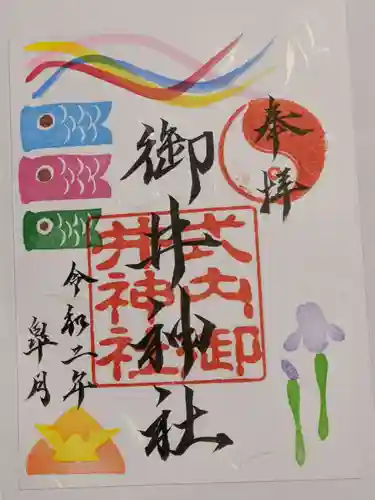 奉拝
御井神社
式内御井神社
令和二年
皐月